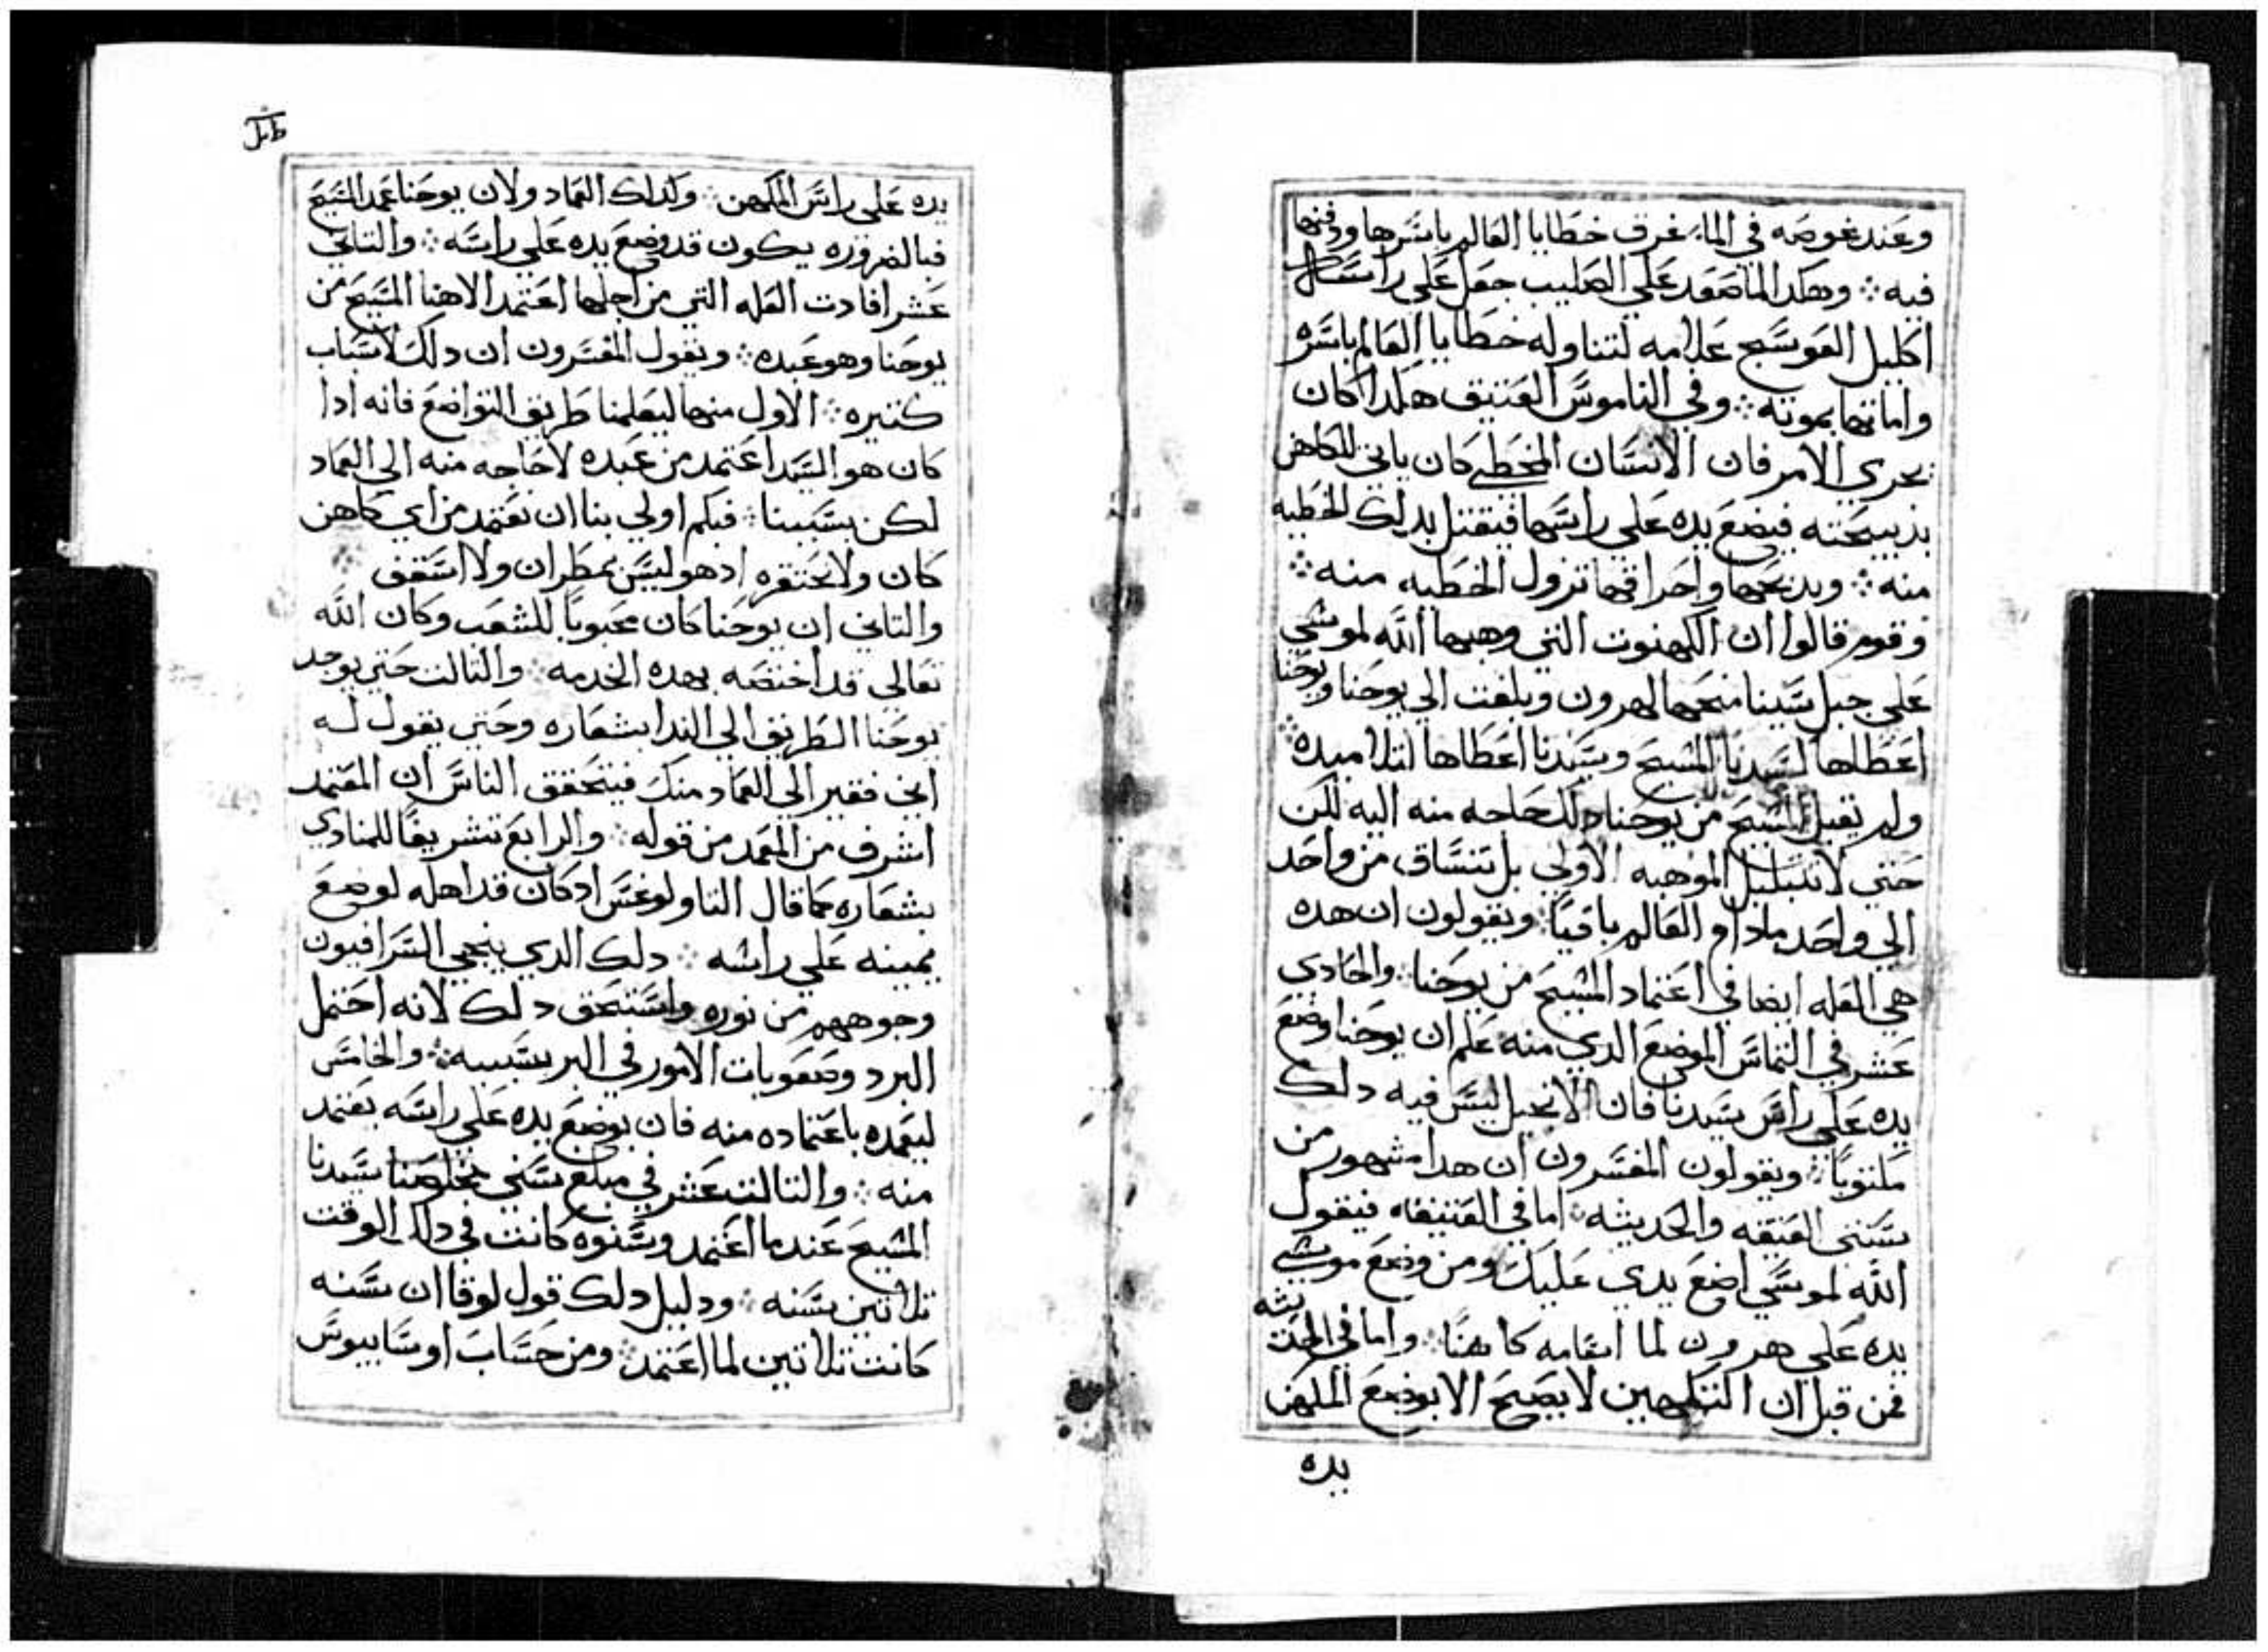 وعند غوصه في الماء غرق خطايا العالم باسرها ودفنها
فيه ܀ وهكدا لما صعد علي الصليب جعل علي راسه
اكليل العوسج علامه لتناوله خطايا العالم باسره
واماتتها بموته ܀ وفي الناموس العتيق هكدا كان
يجري الامر فان الانسان المخطي كان ياتي للكاهن
بذبيحته فيضع يده علي راسها فيقتل بدلك الخطيه
منه ܀ وبدبحها واحراقها تزول الخطيه منه ܀
وقوم قالوا ان الكهنوت التي وهبها الله لموسي
علي جبل سينا منحها لهرون وبلغت الي يوحنا ويوحنا
اعطاها لسيدنا المسيح وسيدنا اعطاها لتلاميده ܀
ولم يقبل المسيح من يوحنا دلك لحاجه منه اليه لكن
حتي لا تتبلبل الموهبه الاولي بل تنساق من واحد
الي واحد مادام العالم باقيًا ܀ ويقولون ان هده
هي العله ايضا في اعتماد المسيح من يوحنا ܀ والحادي
عشر في التماس الموضع الدي منه علم ان يوحنا وضع
يده علي راس سيدنا فان الانجيل ليس فيه دلك
مكتوبًا ܀ ويقولون المفسرون ان هدا مشهور من
سنتي العتيقه والحديثه ܀ اما في العتيقه فيقول
الله لموسي اضع يدي عليك ومن وضع موسي
يده علي هرون لما اقامه كاهنًا ܀ واما في الحديثه
فمن قبل ان التكهين لا يصح الا بوضع المكهن
يده
يده علي راس المكهن ܀ وكدلك العماد ولان يوحنا عمد المسيح
فبالضروره يكون قد وضع يده علي راسه ܀ والتاني
عشر افادت العله التي من اجلها اعتمد الاهنا المسيح من
يوحنا وهو عبده ܀ ويقول المفسرون ان دلك لاسباب
كتيره ܀ الاول منها ليعلمنا طريق التواضع فانه ادا
كان هو السيد اعتمد من عبده لا حاجه منه الي العماد
لكن بسببنا ܀ فبكم اولي بنا ان نعتمد من اي كاهن
كان ولا نحتقره اذ هو ليس بمطران ولا اسقف
والتاني ان يوحنا كان محبوبًا للشعب وكان الله
تعالي قد اختصه بهده الخدمه ܀ والتالت حتي يوجد
يوحنا الطريق الي الندا بشعاره وحتي يقول له
اني فقير الي العماد منك فيتحقق الناس ان المعتمد
اشرف من المعمد من قوله ܀ والرابع تشريفًا للمنادي
بشعاره كما قال التاولوغس اد كان قد اهله لوضع
يمينه علي راسه ܀ دلك الدي ينحي السرافيون
وجوههم من نوره واستحق دلك لانه احتمل
البرد وصعوبات الامور في البر بسببه ܀ والخامس
ليعمده باعتماده منه فان بوضع يده علي راسه يعتمد
منه ܀ والتالت عشر في مبلغ سني مخلصنا سيدنا
المسيح عندما اعتمد وسنوه كانت في دلك الوقت
تلاتين سنه ܀ ودليل دلك قول لوقا ان سنه
كانت تلاتين لما اعتمد ܀ ومن حساب اوسابيوس